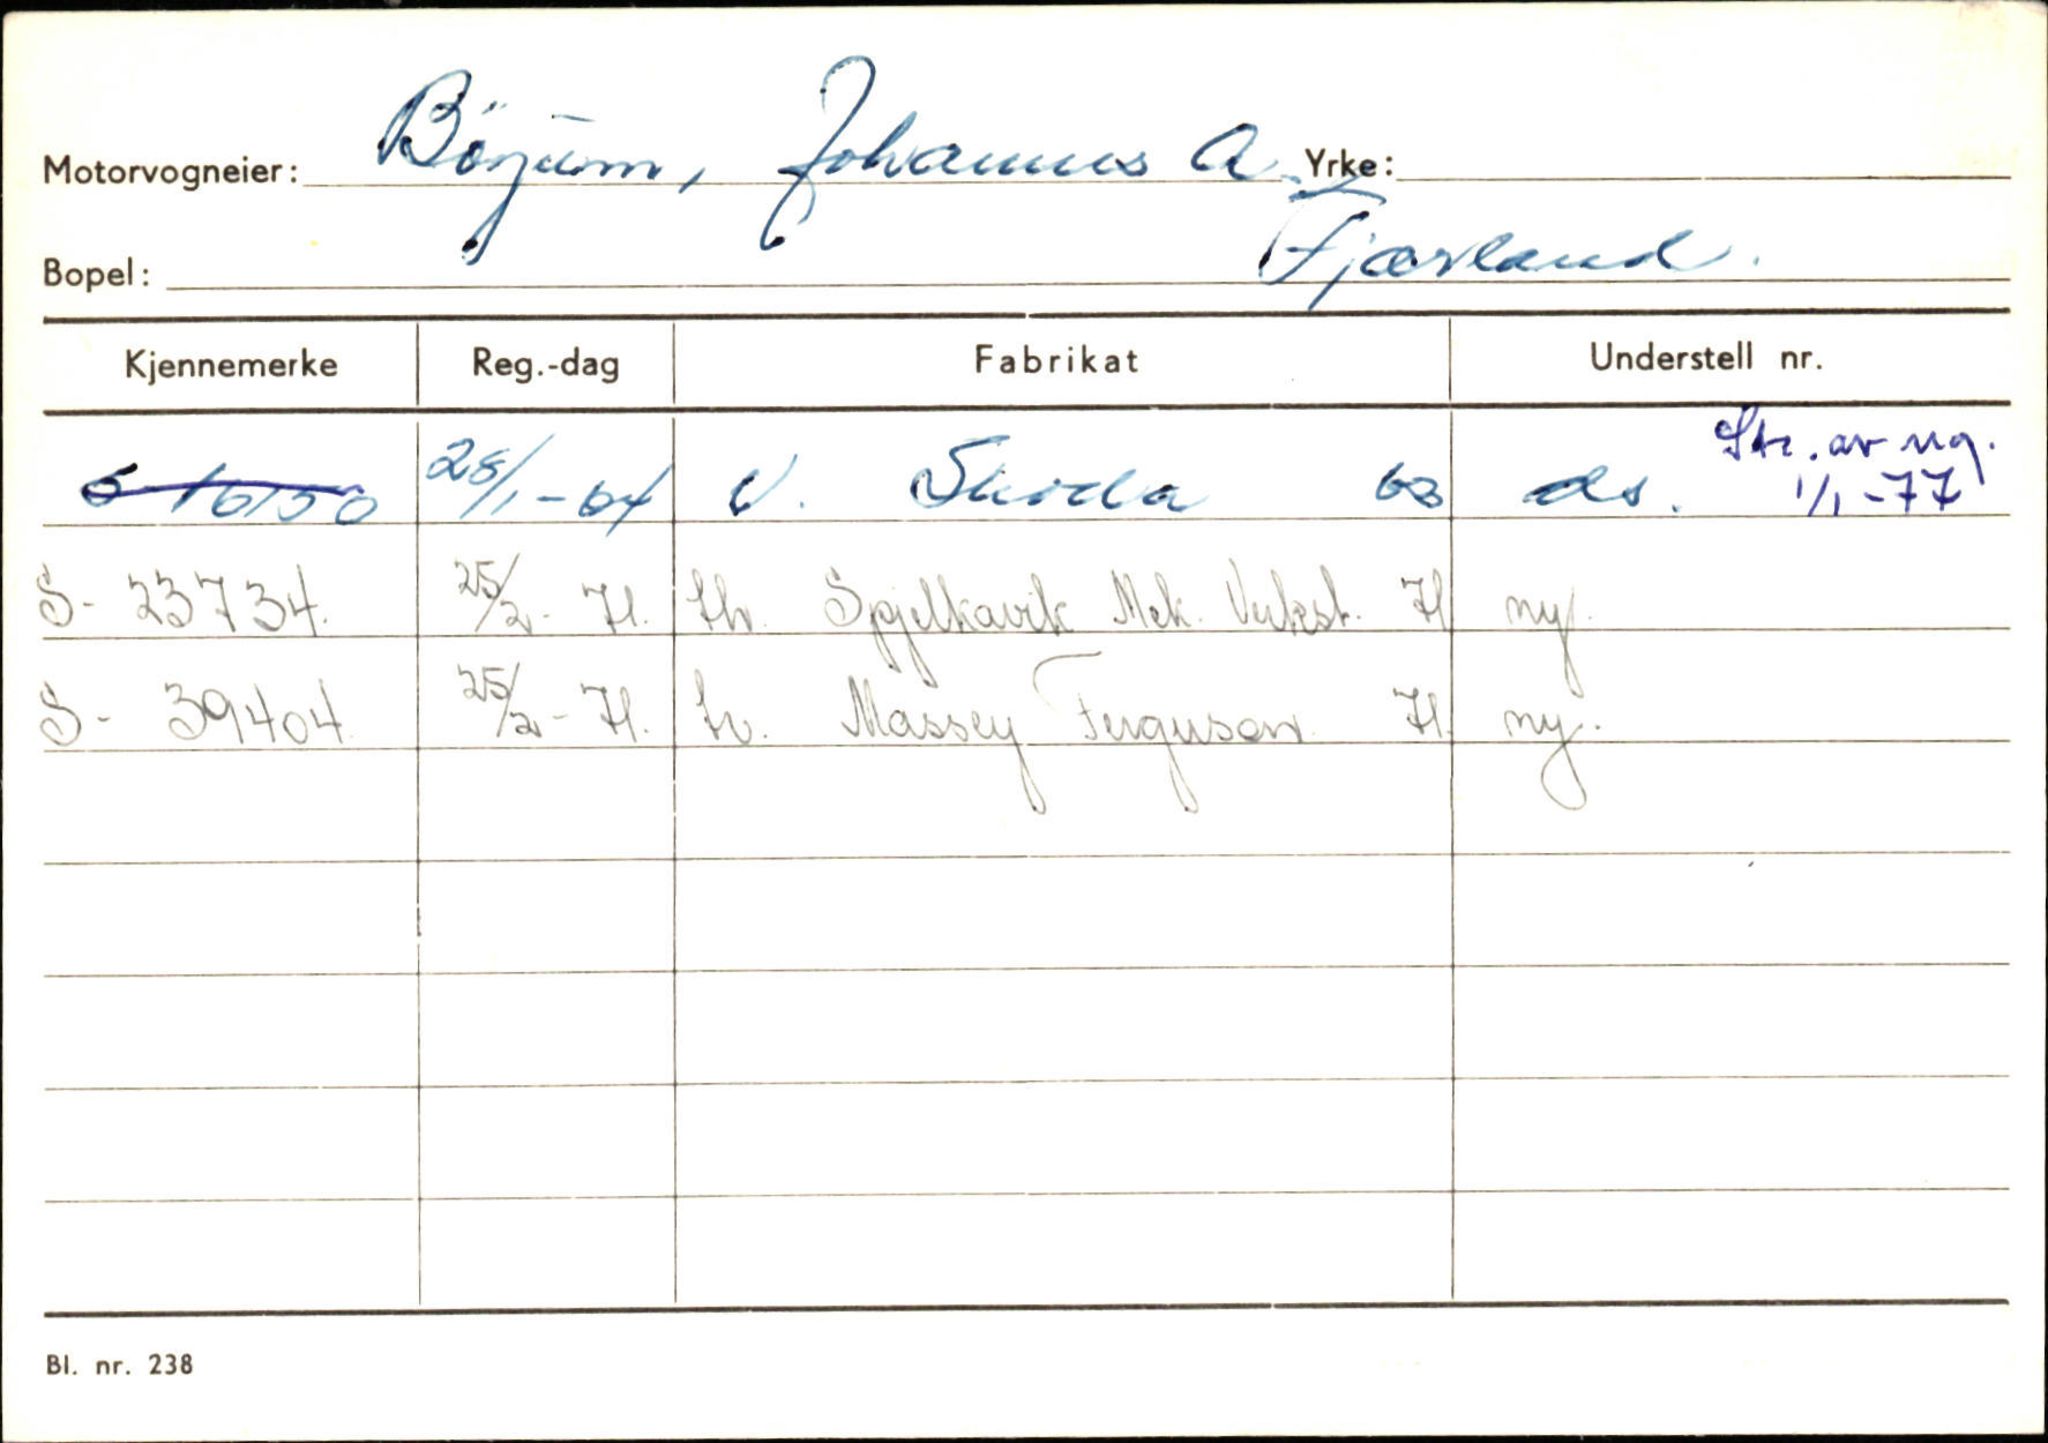 Motorvogneier: Bøyum, Johannes A. Yrke:
Bopel: Fjærland.
Kjennemerke Reg.-dag Fabrikat Understell nr.
Str. av reg.
S 16150 28/1-64 V. Skoda 63 ds. 1/1-77
S- 23734. 25/2- 71. th. Spjelkavik Mek. Verkst. 71 ny.
S- 39404 25/2- 71. tr. Massey Ferguson 71. ny.
Bl. nr. 238